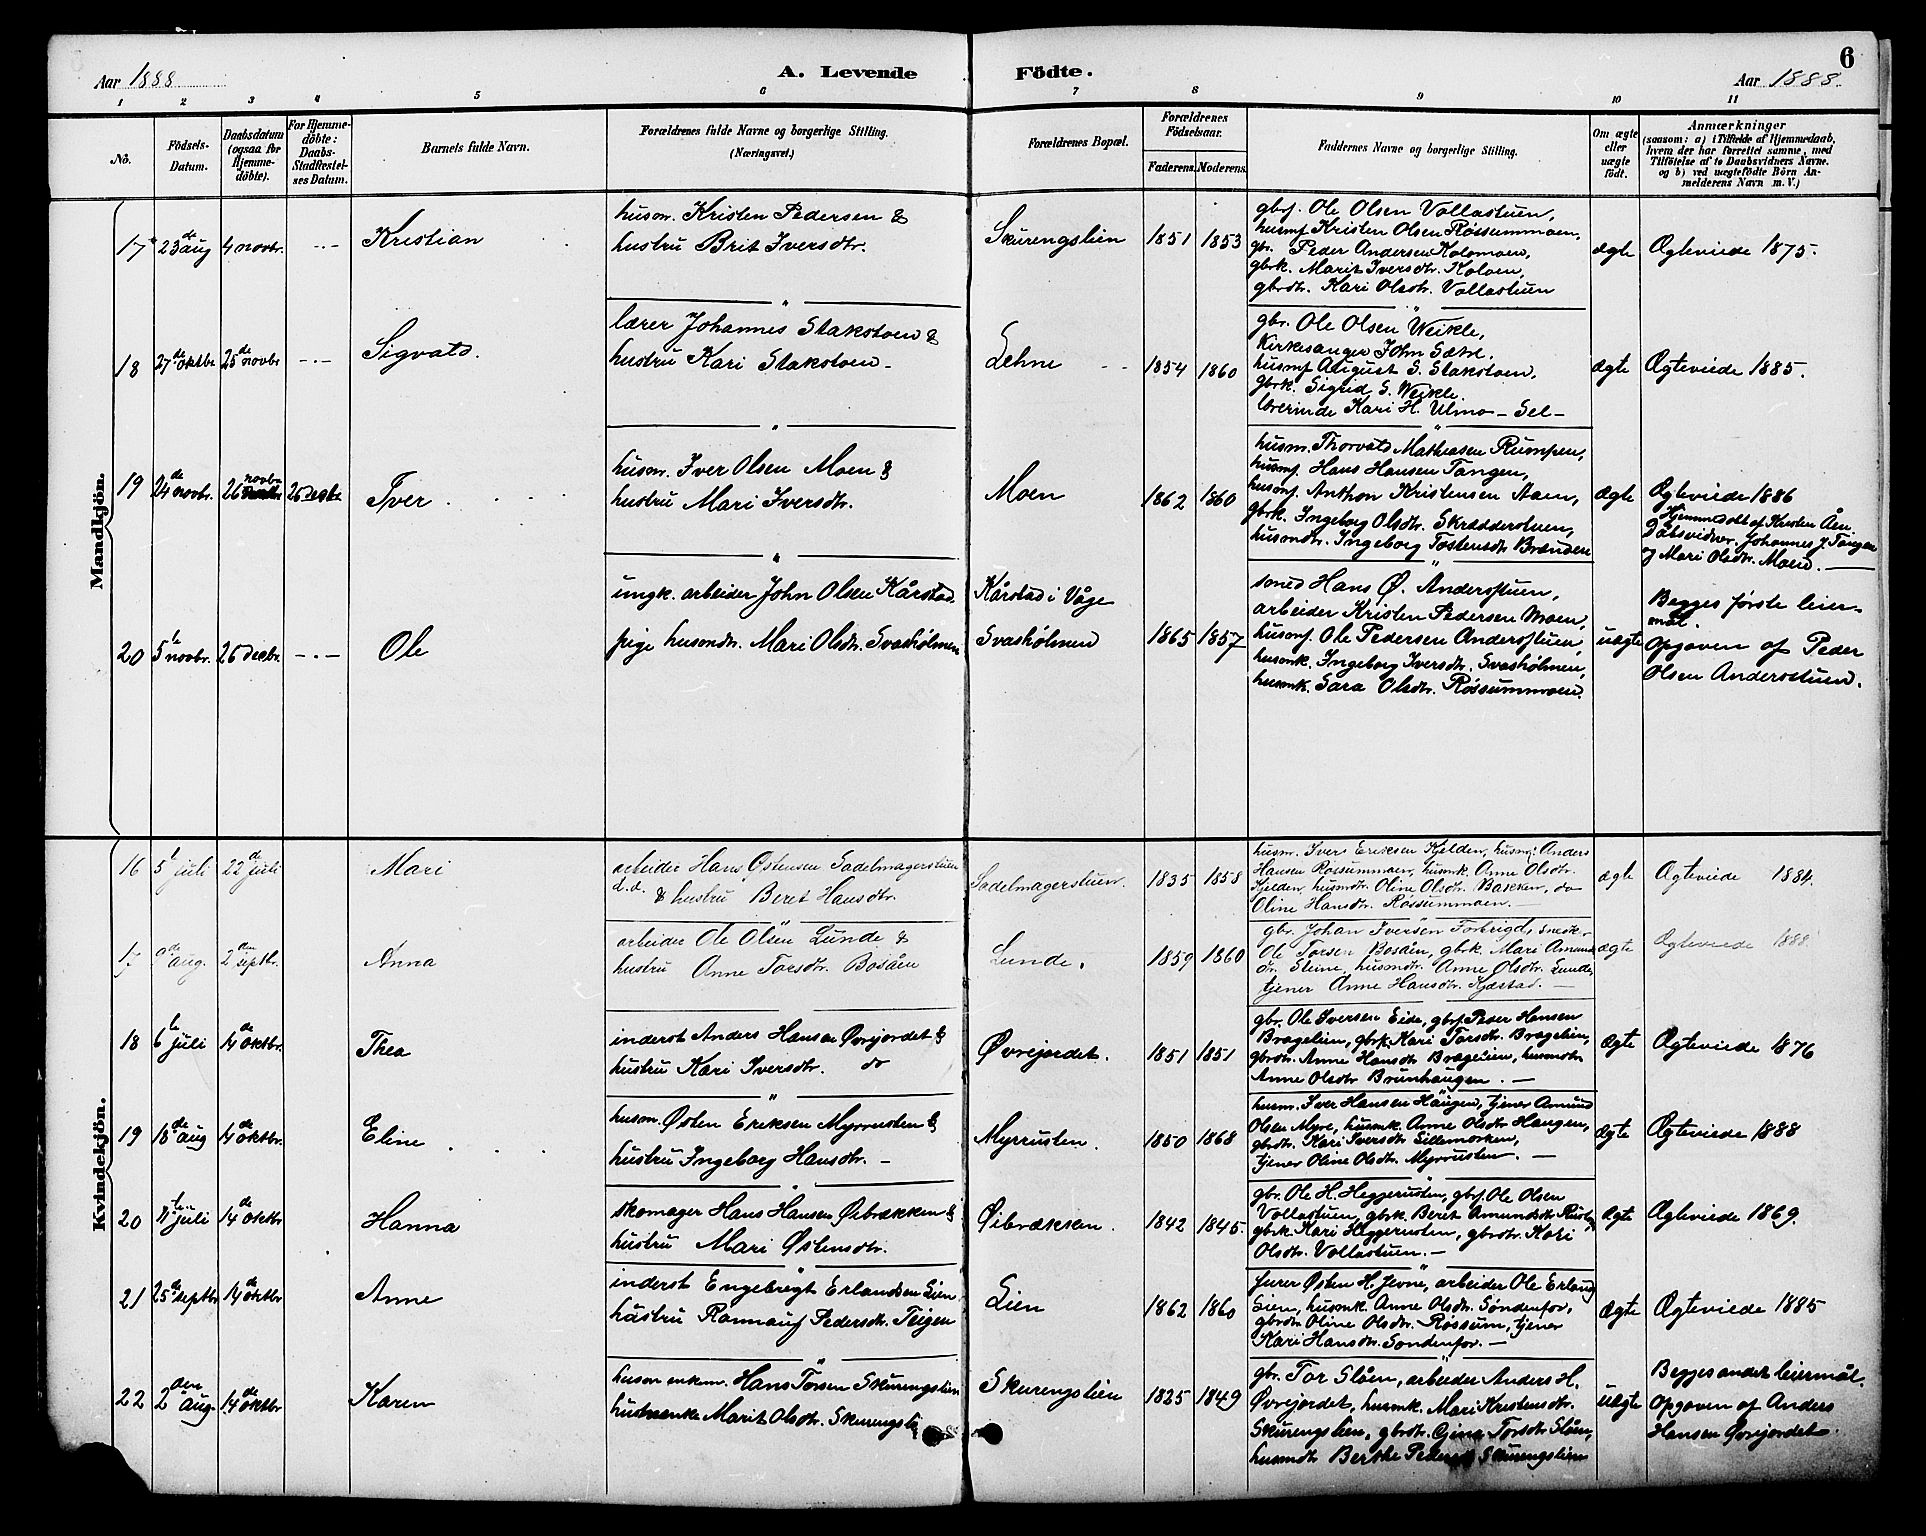 6
Aar 1888
A. Levende Födte.
Aar 1888.
1 2 3 4 5 6 7 8 9 10 11
No.
Födsels-Datum.
Daabsdatum (ogsaa for Hjemme-döbte).
For Hjemme-döbte: Daabs-Stadfæstel-ses Datum.
Barnets fulde Navn.
Forældrenes fulde Navne og borgerlige Stilling. (Næringsvei.)
Forældrenes Bopæl.
Forældrenes Födselsaar.
Faderens. Moderens.
Faddernes Navne og borgerlige Stilling.
Om ægte eller uægte födt.
Anmærkninger
(saasom: a) i Tilfælde af Hjemmedaab, hvem der har forrettet samme, med Tilföielse af to Daabsvidners Navne. og b) ved uægtefödte Börn An-melderens Navn m. V.)
Mandkjön.
17 23de aug 4 novbr. -.- Kristian
husm. Kristen Pedersen &
hustru Brit Iversdtr.
Skurengslien 1851 1853
gbrf. Ole Olsen Vollastuen,
husmf Kristen Olsen Røssummoen,
gbr. Peder Andersen Kolomoen,
gbrk. Marit Iversdtr. Koloen,
gbrdtr. Kari Olsdtr. Vollastuen
ægte Ægteviede 1875.
18 27de oktbr 25de novbr -.- Sigvald.
lærer Johannes Stakstoen &
hustru Kari Stakstoen -
Lehne 1854 1860
gbr. Ole Olsen Weikle,
Kirkesanger John Sætre.
husmf August S. Stakstoen,
gbrk. Sigrid S. Weikle.
lærerinde Kari H. Ulmo - Sel -
ægte Ægteviede 1885.
19 24de novbr. 26 novbr 26 Decbr. Iver
husm. Iver Olsen Moen &
hustru Mari Iversdtr.
Moen 1862 1860
husm. Thorvald Mathiasen Rumpen,
husmf. Hans Hansen Tangen,
husmf. Anthon Kristensen Aaen,
gbrk. Ingeborg Olsdtr. Skrædderstuen,
husmdtr. Ingeborg Tostensdtr Brænden
ægte Ægteviede 1886
Hjemmedøbt af Kristen Åen
Dåbsvidner. Johannes J. Tangen
og Mari Olsdtr. Moen. -
20 5te novbr. 26 Decbr. -.- Ole
ungk. arbeider John Olsen Kårstad
pige husmdtr. Mari Olsdtr. Svashølmen
Kårstad i Våge
Svashølmen 1865 1857
Hans Ø. Anderstuen,
arbeider Kristen Pedersen Moen,
husmf. Ole Pedersen Anderstuen,
husmk. Ingeborg Iversdtr. Svashølmen,
husmk. Sara Olsdtr. Røssummoen.
uægte
Begges første leier-
mål.
Opgaven af Peder
Olsen Anderstuen.
Kvindekjön.
16 5te juli 22de juli Mari
arbeider Hans Østensen Sadelmagerstuen
d.d. & hustru Beret Hansdtr.
Sadelmagerstuen. 1835 1858
husm. Ivers Eriksen Kjelden, husmf. Anders
Hansen Røssummoen, husmk. Anne Olsdtr.
Kjelden, husmdtr. Oline Olsdtr. Bakken, do
Oline Hansdtr. Røssummoen. -
ægte Ægteviede 1884.
17 9de aug. 2den septbr. Anna
arbeider Ole Olsen Lunde &
hustru Anne Torsdtr. Bosåen
Lunde. 1859 1860
gbr. Johan Iversen Forbrigd, snedk.
Ole Torsen Bosåen, gbrk. Mari Amunds
dr. Steine, husmdtr. Anne Olsdtr. Lunde,
tjener Anne Hansdtr. Kjæstad. -
ægte Ægteviede 1888.
18 6te juli 14de oktbr. Thea
inderst Anders Hansen Øvrejordet &
hustru Kari Iversdtr. do
Øvrejordet. 1851 1851
gbr. Ole Iversen Eide, gbrf Peder Hansen
Bragelien, gbrk. Kari Torsdtr. Bragelien,
gbrdtr. Anne Hansdtr Bragelien, husmdtr
Anne Olsdtr Brunhaugen. -
ægte Ægteviede 1876
19 18de aug 14de oktbr. Eline
husm. Østen Eriksen Myrrusten &
hustru Ingeborg Hansdtr. -
Myrrusten. 1850 1868
husm. Iver Hansen Haugen, tjener Amund
Olsen Myre, husmk. Anne Olsdtr Haugen,
gbrdtr. Kari Iversdtr Sillemorken,
tjener Oline Olsdtr. Myrrusten. -
ægte Ægteviede 1888
20 11te juli 14de oktbr Hanna
skomager Hans Hansen Øibrækken &
hustru Mari Østensdtr.
Øibrækken. 1842 1845.
gbr. Ole H. Heggerusten, gbrf. Ole Olsen
Vollastuen, gbrk. Beret Amundsdtr
gbrk Kari Heggerusten, gbrdtr. Kari
Olsdtr. Vollastuen. -
ægte Ægteviede 1869.
21 25de septbr 14de oktbr Anne
inderst Engebregt Erlandsen Lien
hustru Rønnaug Pedersdtr. Teigen
Lien 1862 1860
furer Østen H. Jevne, arbeider Ole Erlands
Lien, husmk. Anne Olsdtr. Søndenfor,
gbrdtr. Oline Olsdtr. Røssum, tjener
Kari Hansdtr. Søndenfor. -
ægte Ægteviede 1885
22 2den aug. 14de oktbr Karen
husm enkem. Hans Torsen Skurengslien
husmenke Marit Olsdtr. Skurengslien
Skurengslien 1825 1849
gbr. Tor Slåen, arbeider Anders H.
Øvrejordet, husmk. Mari Kristensdtr.
Skurengslien, gbrdtr. Gina Torsdtr Slåen,
husmdtr Berthe Pedersdtr Skurengslien
uægte
Begges andet leiermål.
Opgaven af Anders
Hansen Øvrejordet.